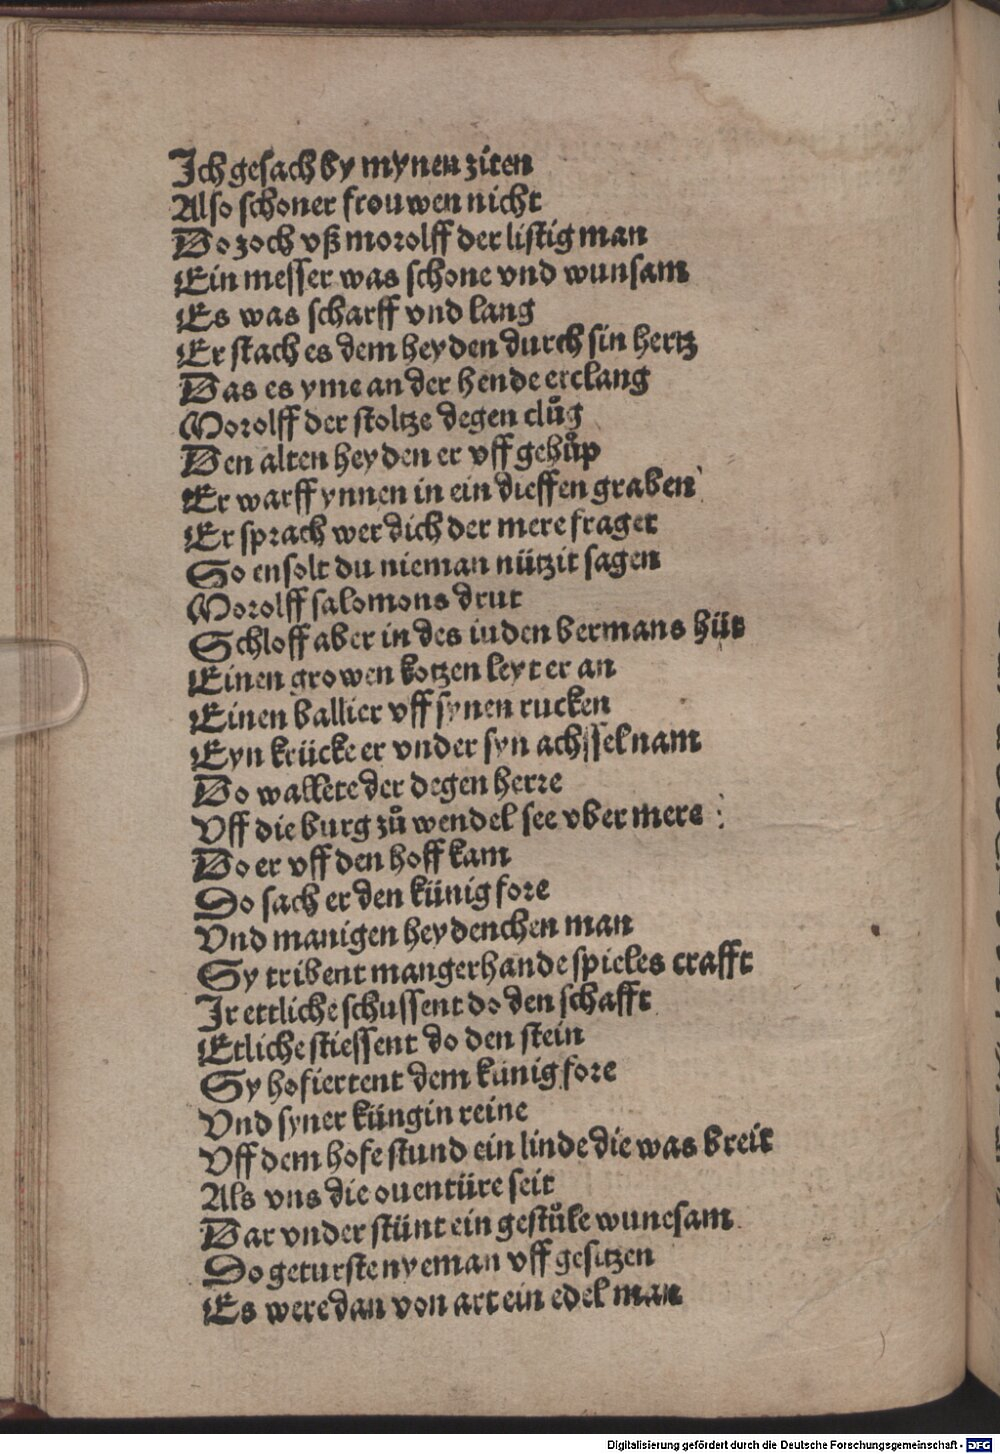 Ich gesach by mynen ziten
Also schoner frouwen nicht
Do zoch vß morolff der listig man
Ein messer was schone vnd wunsam
Es was scharff vnd lang
Er stach es dem heyden durch sin hertz
Das es yme an der hende erclang
Morolff der stoltze degen clůg
Den alten heyden er vff gehůp
Er warff ynnen in ein dieffen graben
Er sprach wer dich der mere fraget
So ensolt du nieman nützit sagen
Morolff salomons drut
Schloff aber in des iuden bermans hüt
Einen growen kotzen leyt er an
Einen ballier vff synen rucken
Eyn krücke er vnder syn achsselnam
Do wallete der degen herre
Vff die burg zů wendel see vber mere :
Do er vff den hoff kam
Do sach er den künig fore
Vnd manigen heydenchen man
Sy tribent mangerhande spieles crafft
Ir ettliche schussent do den schafft
Etliche stiessent do den stein
Sy hofiertent dem künig fore
Vnd syner küngin reine
Vff dem hofe stund ein linde die was breit
Als vns die ouentüre seit
Dar vnder stünt ein gestůle wunesam
Do geturste nyeman vff gesitzen
Es were dan von art ein edel man
Digitalisierung gefördert durch die Deutsche Forschungsgemeinschaft - DFG